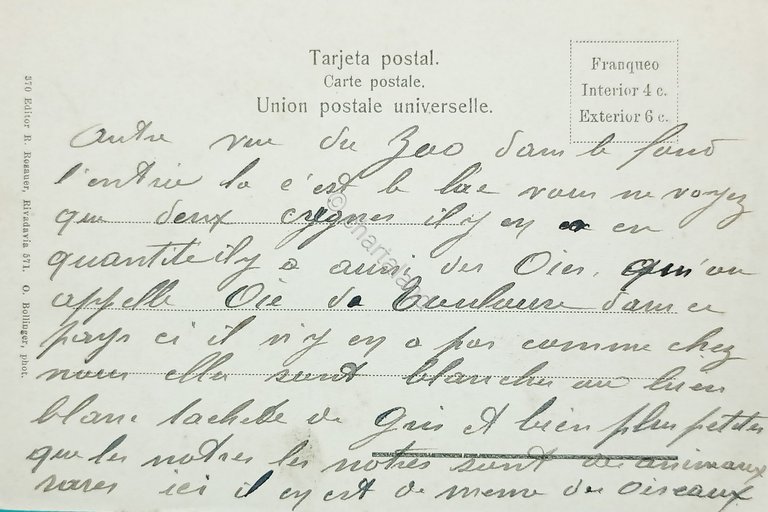 Tarjeta postal.
Carte postale.
Union postale universelle.
Franqueo
Interior 4 c.
Exterior 6 c.
370 Editor R. Rosauer, Rivadavia 571. O. Bollinger, phot.
Autre vue du Zoo dans le fond
l'entrée la c'est le lac vous ne voyez
que deux cygnes il y en a en
quantité il y a aussi des Oies, qu'on
appelle Oie de Toulouse dans ce
pays ci il n'y en a pas comme chez
nous elles sont blanches ou bien
blanc tacheté de Gris et bien plus petites
que les notres les notres sont des animaux
rares ici il en est de meme des oiseaux